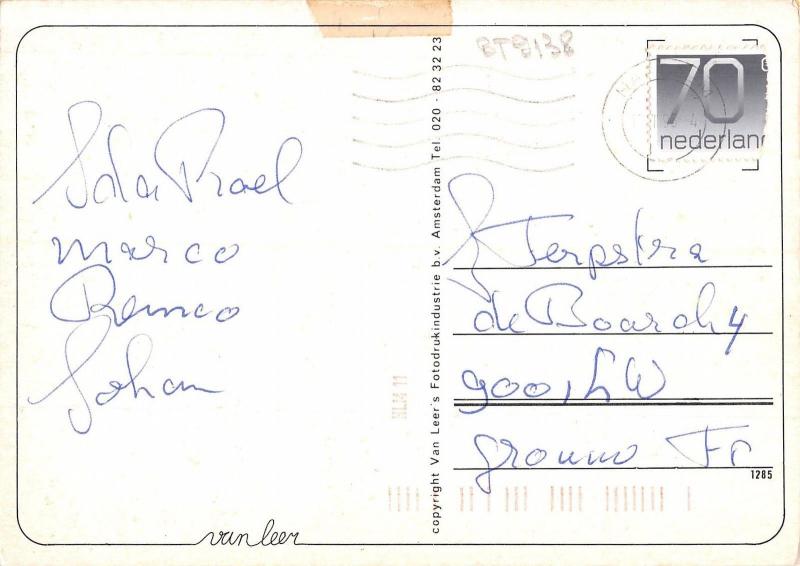 Prael
Marco
Remco
Johan
van leer
copyright Van Leer's Fotodrukindustrie b.v. Amsterdam Tel. 020 - 82 32 23
BTS138
70
nederlan
Terpstra
de Boarch 4
9001 LW
Grouw Fr
1285
KLM 11